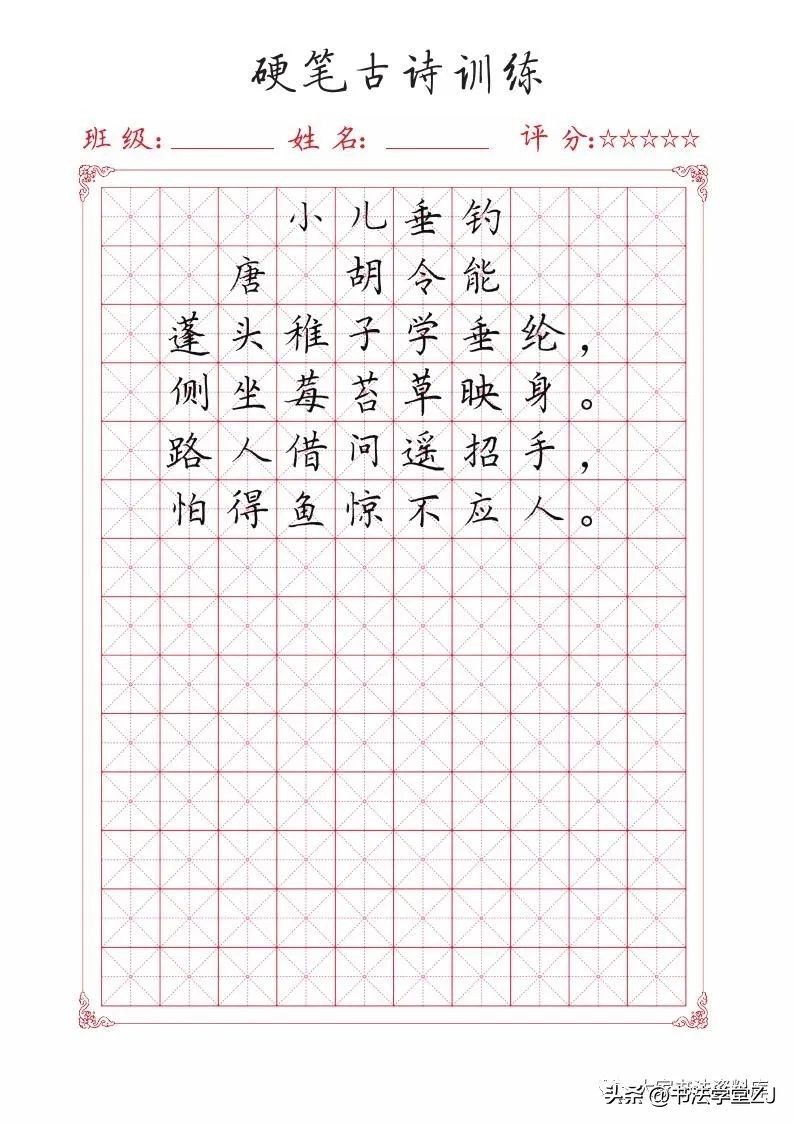 硬笔古诗训练
班级：________ 姓名：________ 评分：☆☆☆☆☆
小儿垂钓
唐 胡令能
蓬头稚子学垂纶，
侧坐莓苔草映身。
路人借问遥招手，
怕得鱼惊不应人。
大家书法资料库
头条@书法学堂ZJ